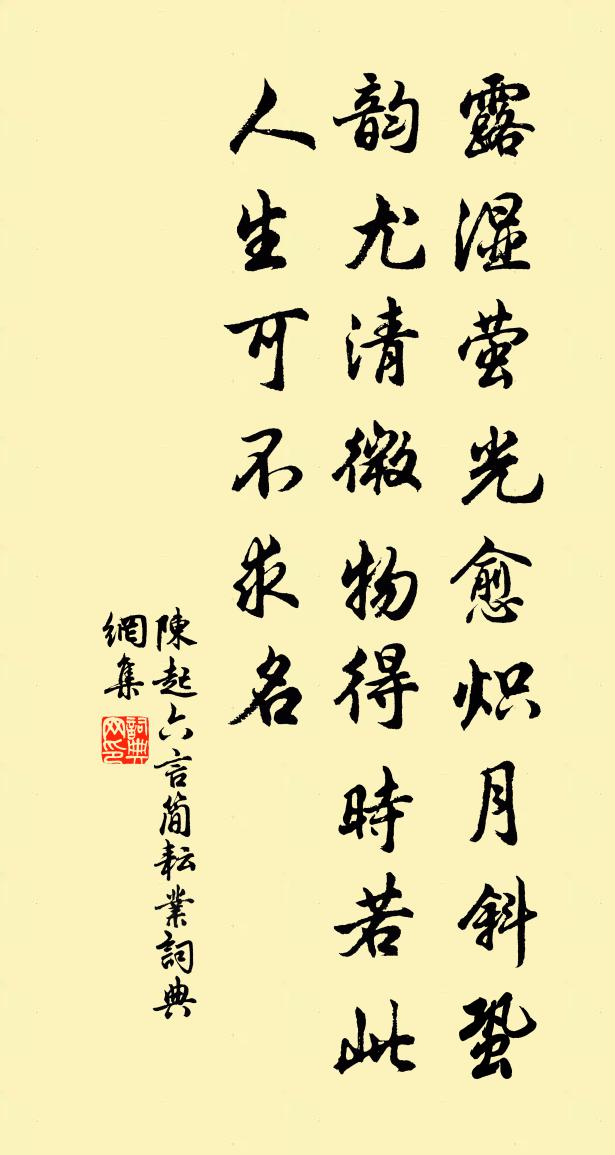 露湿萤光愈炽月斜蛩
韵尤清微物得時若此
人生可不求名
陳起六言简耘業詞典
網集
詞典網印